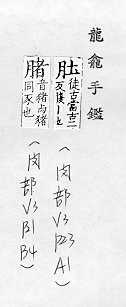 龍龕手鑑
肚 徒古當古二
反腹丨也
(肉部 V3 P23 A1)
䐗 音猪与猪
同豕也
(肉部 V3 B1 B4)